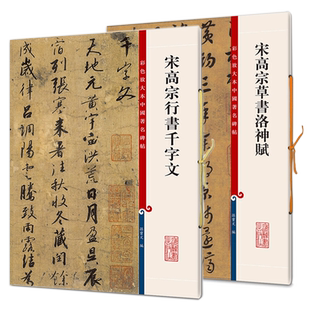 千字文
天地元黃宇宙洪荒日月盈昃辰
宿列張寒来暑往秋收冬藏閏餘
成歲律呂調陽雲騰致雨露結為
彩色放大本中國著名碑帖
宋高宗行書千字文
孫寶文 編
彩色放大本中國著名碑帖
宋高宗草書洛神賦
孫寶文 編